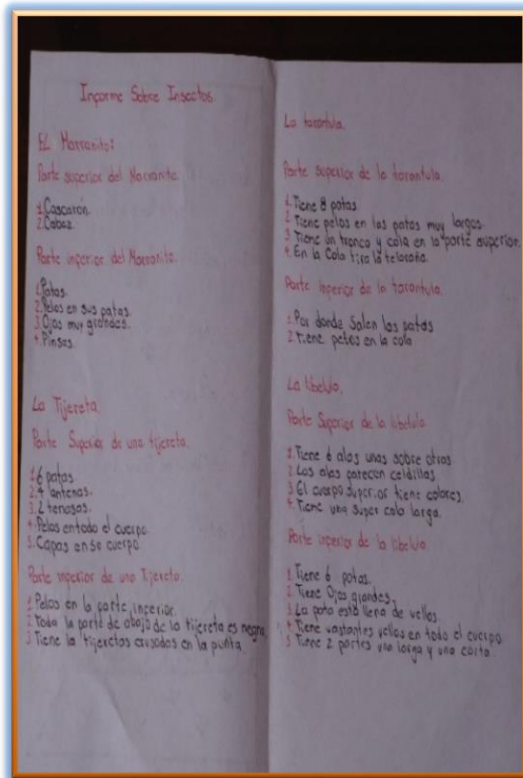 Informe Sobre Insectos.
El Marranito:
Parte superior del Marranito.
1. Cascarón.
2. Cabeza.
Parte inferior del Marranito.
1. Patas.
2. Pelos en sus patas.
3. Ojos muy grandes.
4. Pinsas.
La Tijereta.
Parte Superior de una tijereta.
1. 6 patas
2. 4 antenas.
3. 2 tenasas.
4. Pelos en todo el cuerpo.
5. Capas en su cuerpo.
Parte inferior de una Tijereta.
1 Pelos en la parte inferior.
2. Toda la parte de abajo de la tijereta es negra
3 Tiene la tijeretas crusadas en la punta
La tarantula.
Parte superior de la tarantula.
1. Tiene 8 patas.
2 Tiene pelos en las patas muy largos.
3 Tiene un tronco y cola en la parte superior.
4. En la Cola tira la telaraña.
Parte inferior de la tarantula.
1. Por donde Salen las patas
2. Tiene pelos en la cola
La libelula.
Parte Superior de la libelula
1. Tiene 6 alas unas sobre otras
2. Las alas parecen celdillas
3 El cuerpo superior tiene colores.
4. Tiene una super cola larga.
Parte inferior de la libelula
1 Tiene 6 patas.
2. Tiene Ojos grandes.
3. La pata está llena de vellos.
4 Tiene vastantes vellos en todo el cuerpo
5 Tiene 2 partes una larga y una corta